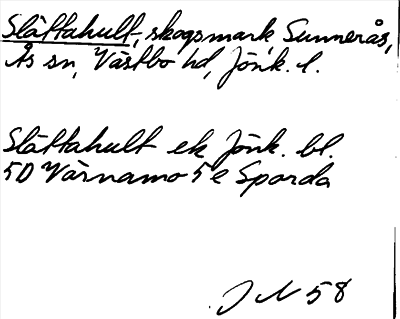 Slättahult, skogsmark, Sunnerås,
Ås sn, Västbo hd, Jönk. l.
Slättahult ek Jönk. bl.
5D Värnamo 5e Sporda
J N 58